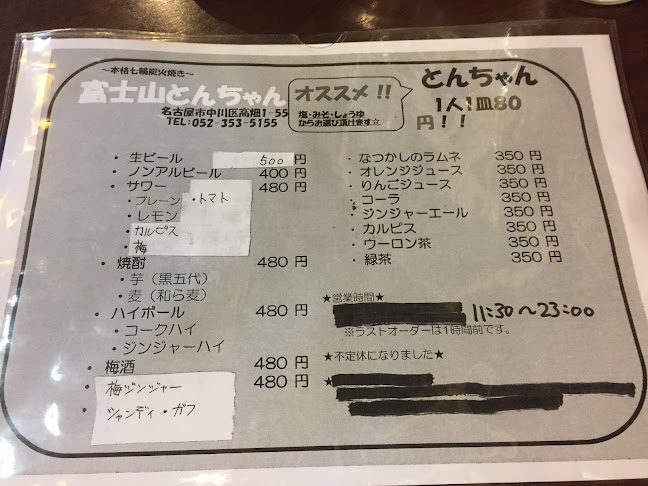 ～本格七輪炭火焼き～
富士山とんちゃん
名古屋市中川区高畑1-55
TEL:052-353-5155
オススメ!!
塩・みそ・しょうゆ
からお選び頂けます☆
とんちゃん
1人1皿80
円!!
・生ビール 500円
・ノンアルビール 400円
・サワー 480円
・プレーン ・トマト
・レモン
・カルピス
・梅
・焼酎 480円
・芋（黒五代）
・麦（和ら麦）
・ハイボール 480円
・コークハイ
・ジンジャーハイ
・梅酒 480円
・梅ジンジャー 480円
・シャンディ・ガフ
・なつかしのラムネ 350円
・オレンジジュース 350円
・りんごジュース 350円
・コーラ 350円
・ジンジャーエール 350円
・カルピス 350円
・ウーロン茶 350円
・緑茶 350円
★営業時間★
11:30～23:00
※ラストオーダーは1時間前です。
★不定休になりました★
★